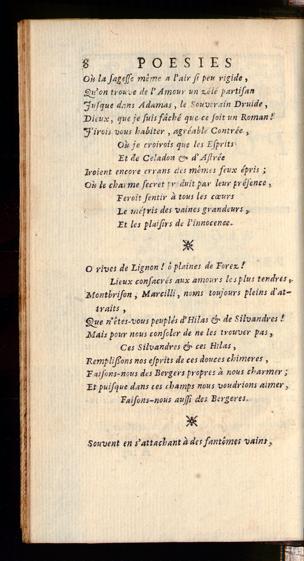 8 POESIES
Où la sagesse même a l'air si peu rigide,
Qu'on trouve de l'Amour un zélé partisan
Jusque dans Adamas, le Souverain Druide,
Dieux, que je suis fâché que ce soit un Roman!
J'irois vous habiter, agréable Contrée,
Où je croirois que les Esprits
Et de Celadon & d'Astrée
Iroient encore errans des mêmes feux épris;
Où le charme secret produit par leur présence,
Feroit sentir à tous les cœurs
Le mépris des vaines grandeurs,
Et les plaisirs de l'innocence.
O rives de Lignon! ô plaines de Forez!
Lieux consacrés aux amours les plus tendres,
Montbrison, Marcilli, noms toujours pleins d'at-
traits,
Que n'êtes-vous peuplés d'Hilas & de Silvandres!
Mais pour nous consoler de ne les trouver pas,
Ces Silvandres & ces Hilas,
Remplissons nos esprits de ces douces chimeres,
Faisons-nous des Bergers propres à nous charmer;
Et puisque dans ces champs nous voudrions aimer,
Faisons-nous aussi des Bergeres.
Souvent en s'attachant à des fantômes vains,